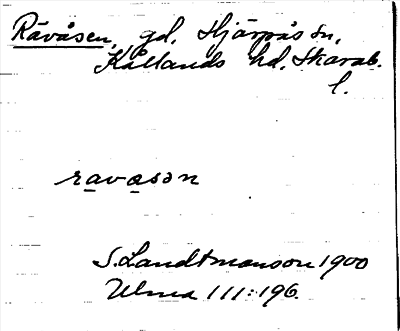 Råvåsen, gd. Hjärpås sn,
Kållands hd. Skarab.
l.
ravasən
S. Landtmanson 1900
Ulma 111:196.